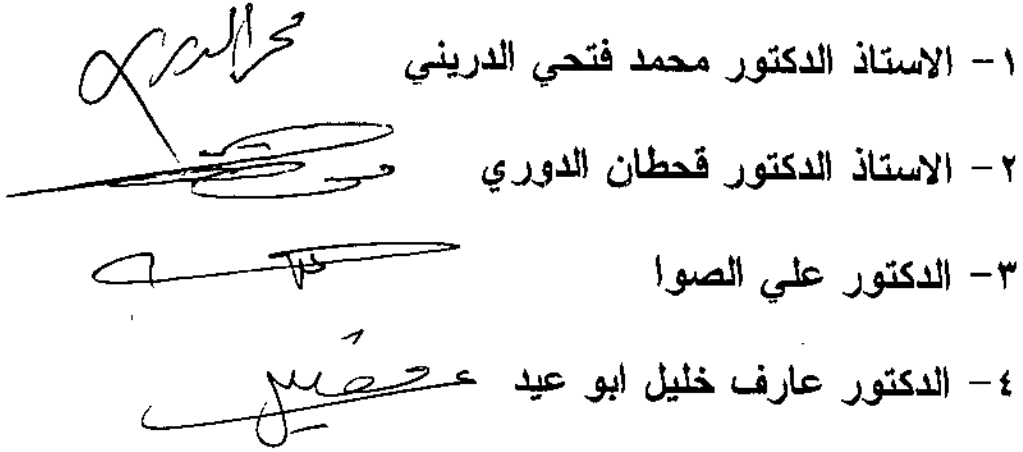 ١- الاستاذ الدكتور محمد فتحي الدريني
٢- الاستاذ الدكتور قحطان الدوري
٣- الدكتور علي الصوا
٤- الدكتور عارف خليل ابو عيد